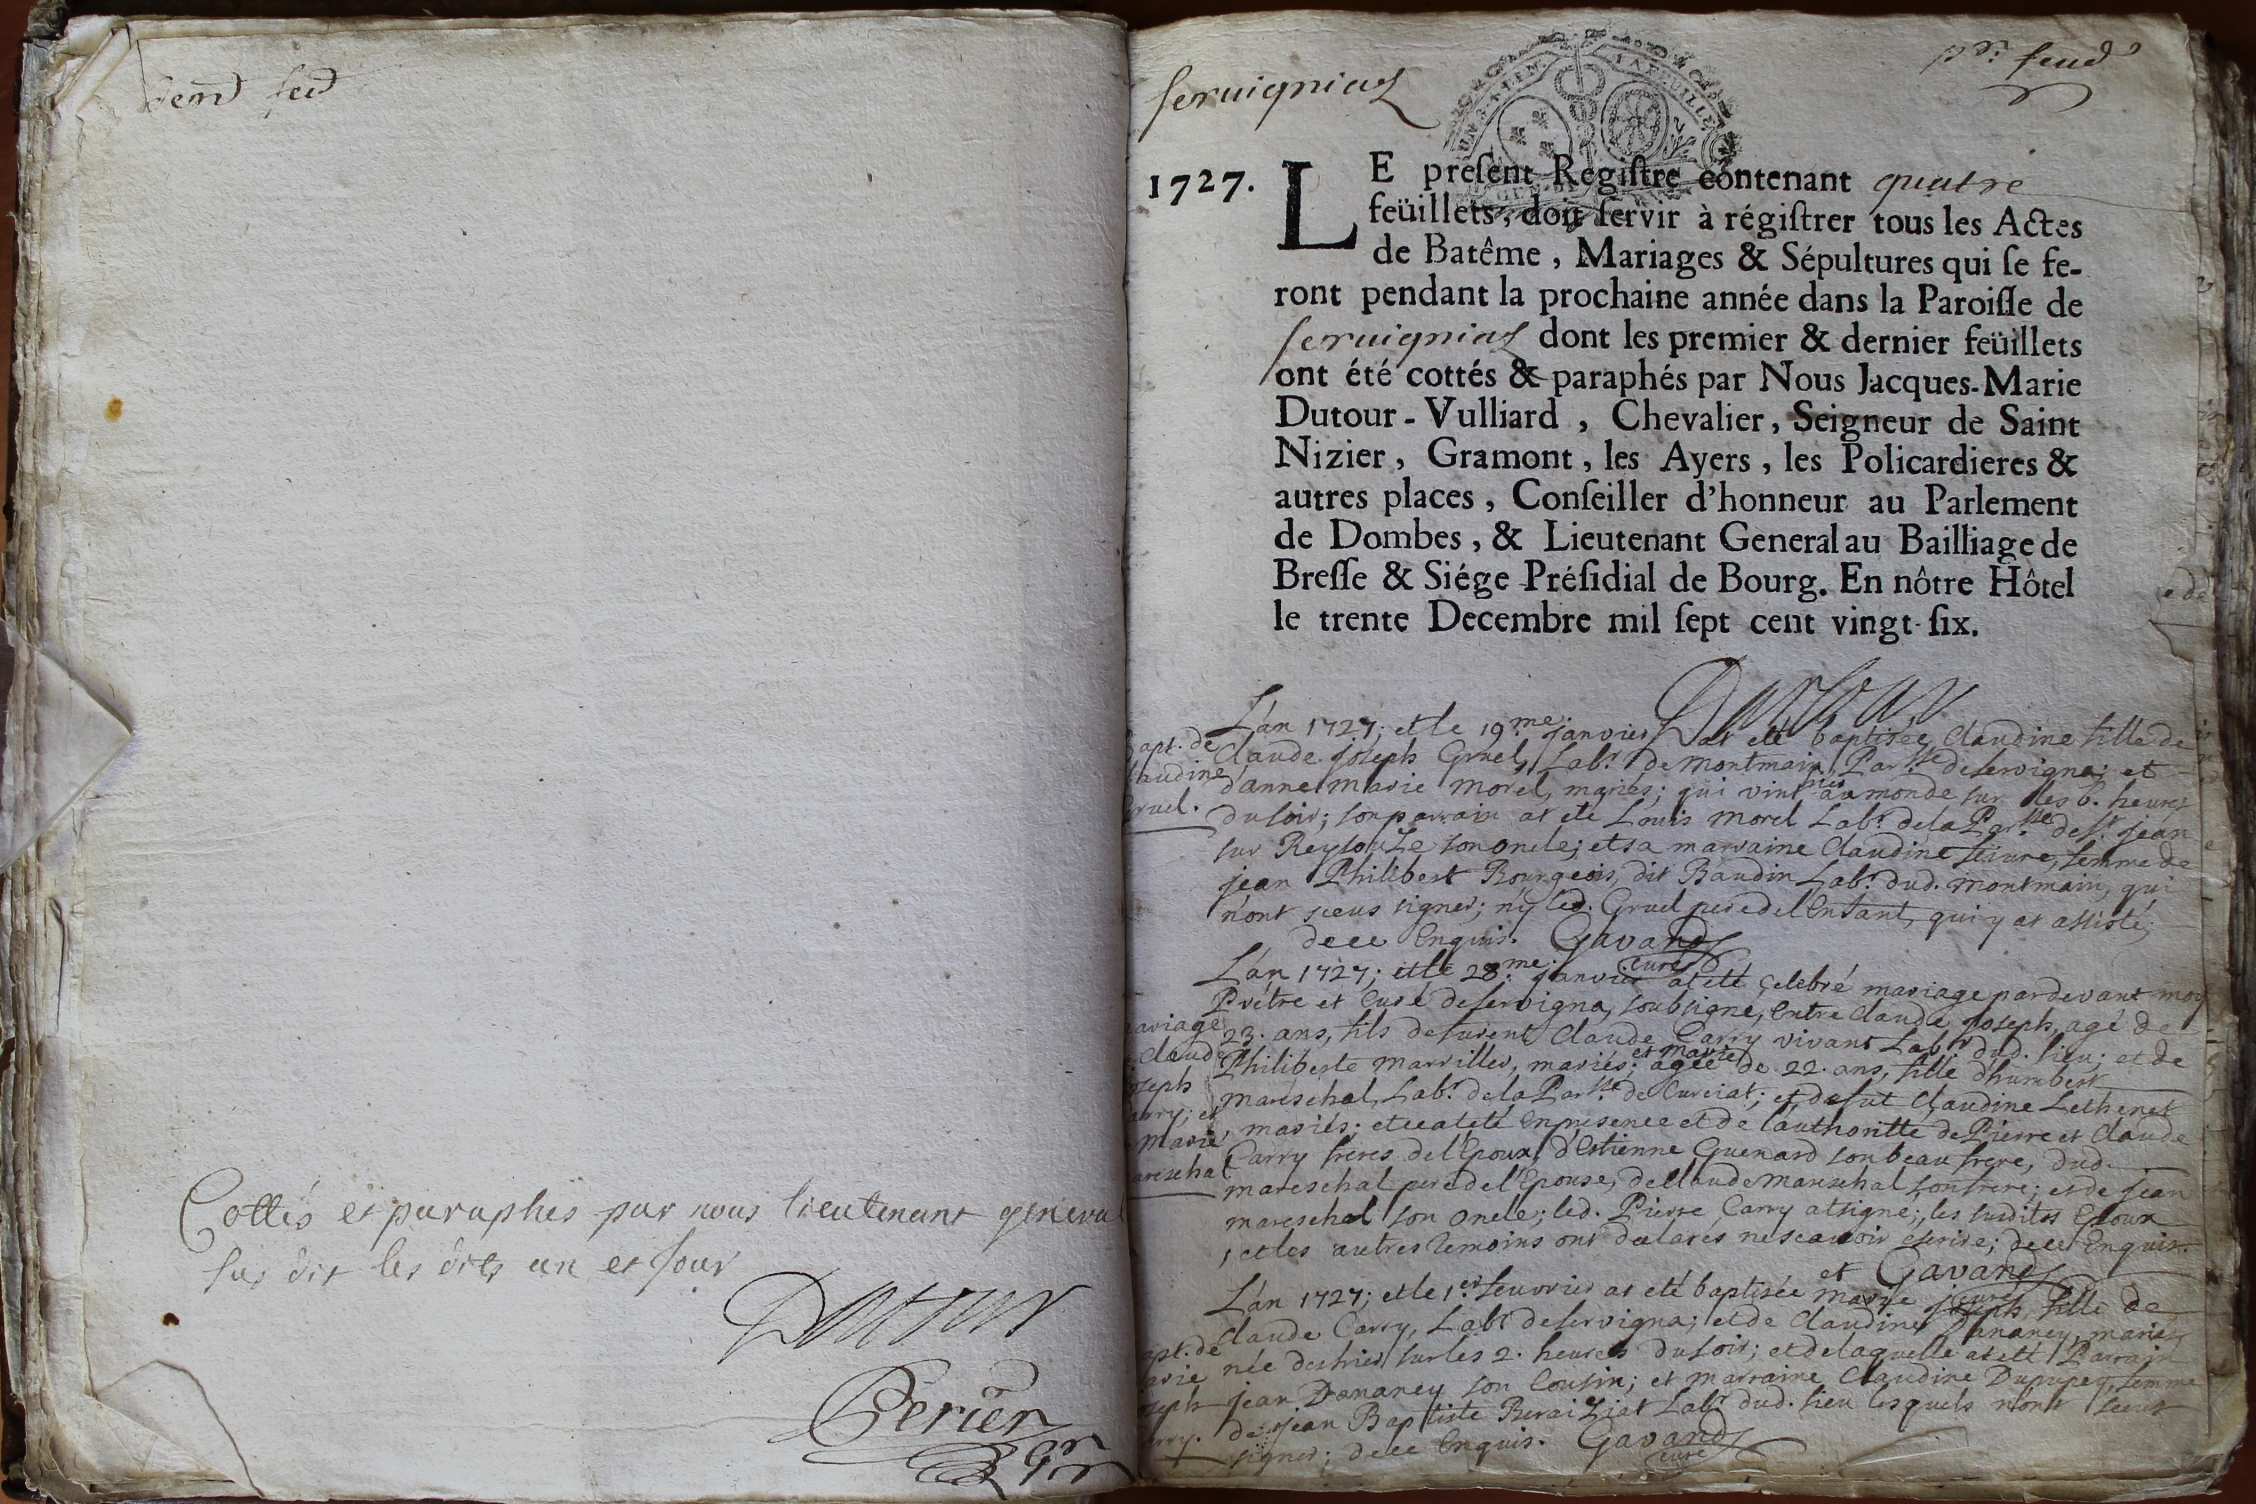 feüd
Cottés et paraphes par nous lieutenant general
sus dit les dits an et jour
Dutour
Perier
Servignias
pr. feüd
1727.
LE preſent Regiſtre contenant quatre
feüillets, doit ſervir à régiſtrer tous les Actes
de Batême, Mariages & Sépultures qui ſe fe-
ront pendant la prochaine année dans la Paroiſſe de
Servignias dont les premier & dernier feüillets
ont été cottés & paraphés par Nous Jacques-Marie
Dutour-Vulliard, Chevalier, Seigneur de Saint
Nizier, Gramont, les Ayers, les Policardieres &
autres places, Conſeiller d'honneur au Parlement
de Dombes, & Lieutenant General au Bailliage de
Breſſe & Siége Préſidial de Bourg. En nôtre Hôtel
le trente Decembre mil ſept cent vingt-ſix.
Dutour
apt. de
laudine
Gruel.
L'an 1727; et le 19.me janvier at eté baptisée Claudine fille de
Claude joseph Gruel, Labr. de montmain, Par.sse de servigna; et
d'anne marie morel, mariés; qui vint hier au monde sur les 6. heures
du soir; son parrain at eté Louis morel Labr. de la Par.sse de st. jean
sur Reysouze son oncle; et sa marraine Claudine feivre, femme de
jean Philibert Bourgeois, dit Baudin Labr. dud. montmain, qui
n'ont sceus signer; ny led. Gruel pere de l'enfant, qui y at assisté;
de ce enquis. Gavand
curé
ariage
Claude
joseph
arry; et
Marie
areschal
L'an 1727; et le 28.me janvier at eté celebré mariage pardevant moy
Prêtre et curé de servigna, soubsigné, entre Claude joseph, agé de
23. ans, fils de furent Claude Carry vivant Labr dud. lieu; et de
Philiberte marviller, mariés; et marie agée de 22. ans, fille d'humbert
mareschal, Labr. de la Par.sse de Curciat; et defut Claudine Lethenet
, mariés; et ce at eté en presence et de l'authoritte de Pierre et Claude
Carry freres de l'Epoux, d'Estienne Guenard son beau frere, dud.
mareschal pere de l'Epouse, de Claude mareschal son frere; et de jean
mareschal son oncle; led. Pierre Carry at signé; les susdits Epoux
, et les autres temoins ont declarés ne scavoir escrire; de ce enquis.
et Gavand
curé
apt. de
arie
oseph
arry.
L'an 1727; et le 1.er feuvrier at eté baptisée marie joseph, fille de
Claude Carry, Labr de servigna; et de Claudine Dananey, mariés
née des hier sur les 2. heures du soir; et de laquelle at eté Parrain
jean Dananey son Cousin; et marraine Claudine Dupupey, femme
de jean Baptiste Beraiziat Labr dud. lieu lesquels n'ont sceus
signer; de ce enquis. Gavand
curé